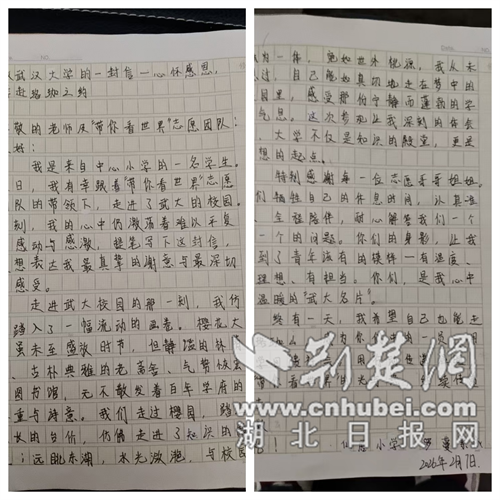 武汉大学的一封信—心怀感恩,
赴珞珈之约
敬的老师及"带你看世界"志愿团队:
好:
我是来自中心小学的一名学生。
日,我有幸跟着"带你看世界"志愿
队的带领下,走进了武大的校园。
刻,我的心中仍激荡着难以平复
感动与感激,提笔写下这封信,
想表达我最真挚的谢意与最深切
感受。
走进武大校园的那一刻,我仿
踏入了一幅流动的画卷。樱花大
虽未至盛放时节,但静谧的林
古朴典雅的老斋舍、气势恢宏
图书馆,无不散发着百年学府的
重与诗意。我们走过樱园,踏
长的台阶,仿佛走进了知识的
;远眺东湖,水光潋滟,与校园
为一体,宛如世外桃源。我从未
过,自己能如真切地走在梦中的
园里,感受那份宁静而蓬勃的学
气息。这次参观让我深刻的体会
大学不仅是知识的殿堂,更是
想的起点。
特别感谢每一位志愿哥哥姐姐。
们牺牲自己的休息时间,认真准
、全程陪伴,耐心解答我们一个
一个的问题。你们的身影,让我
到了青年该有的模样—有温度、
理想、有担当。你们,是我心中
温暖的"武大名片"。
终有一天,我希望自己也能走
小学
2026年2月7日
荆楚网
www.cnhubei.com
湖北日报网